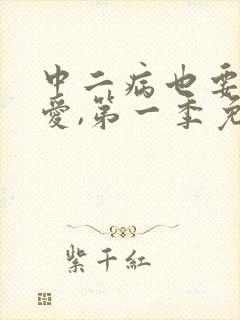 中二病也要
愛,第一季免
紫千紅